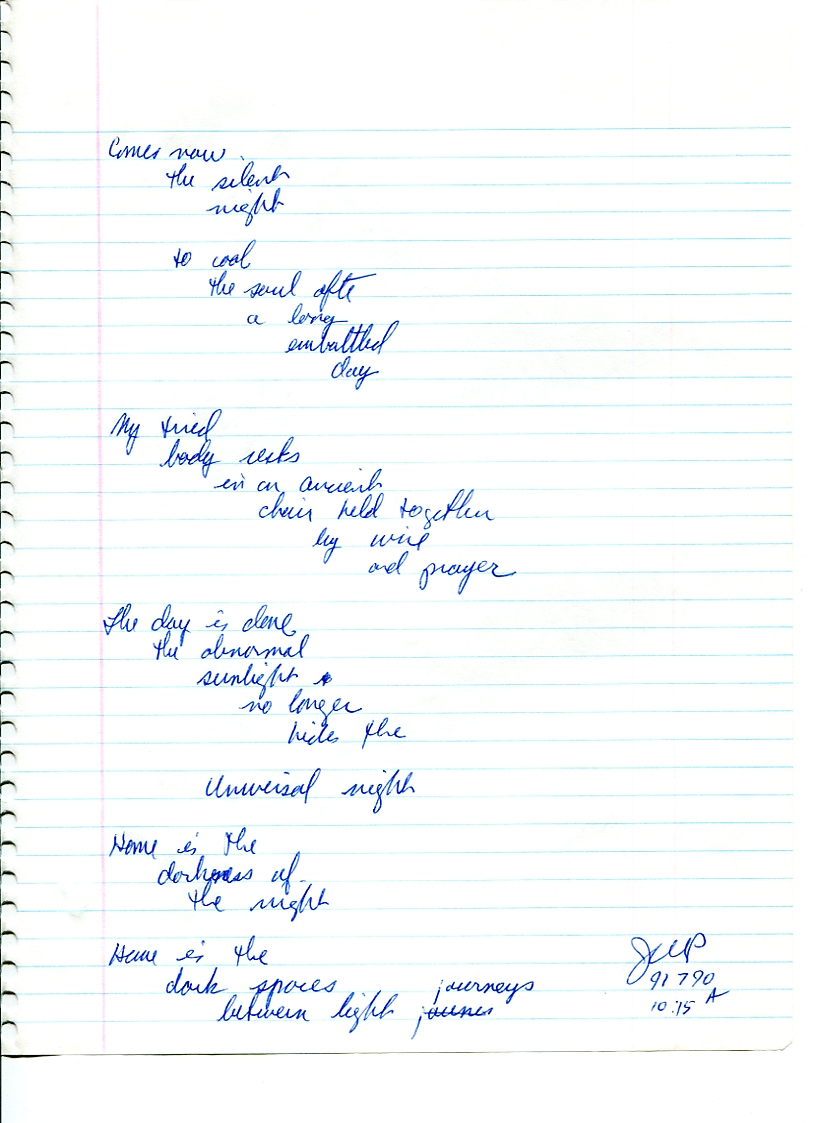 Comes now
the silent
night
to cool
the soul after
a long
embattled
day
My tired
body rests
in an ancient
chair held together
by wire
and prayer
The day is done
the abnormal
sunlight
no longer
hides the
Universal night
Home is the
darkness of
the night
Home is the
dark spaces journeys
between light
91790
10:15 A